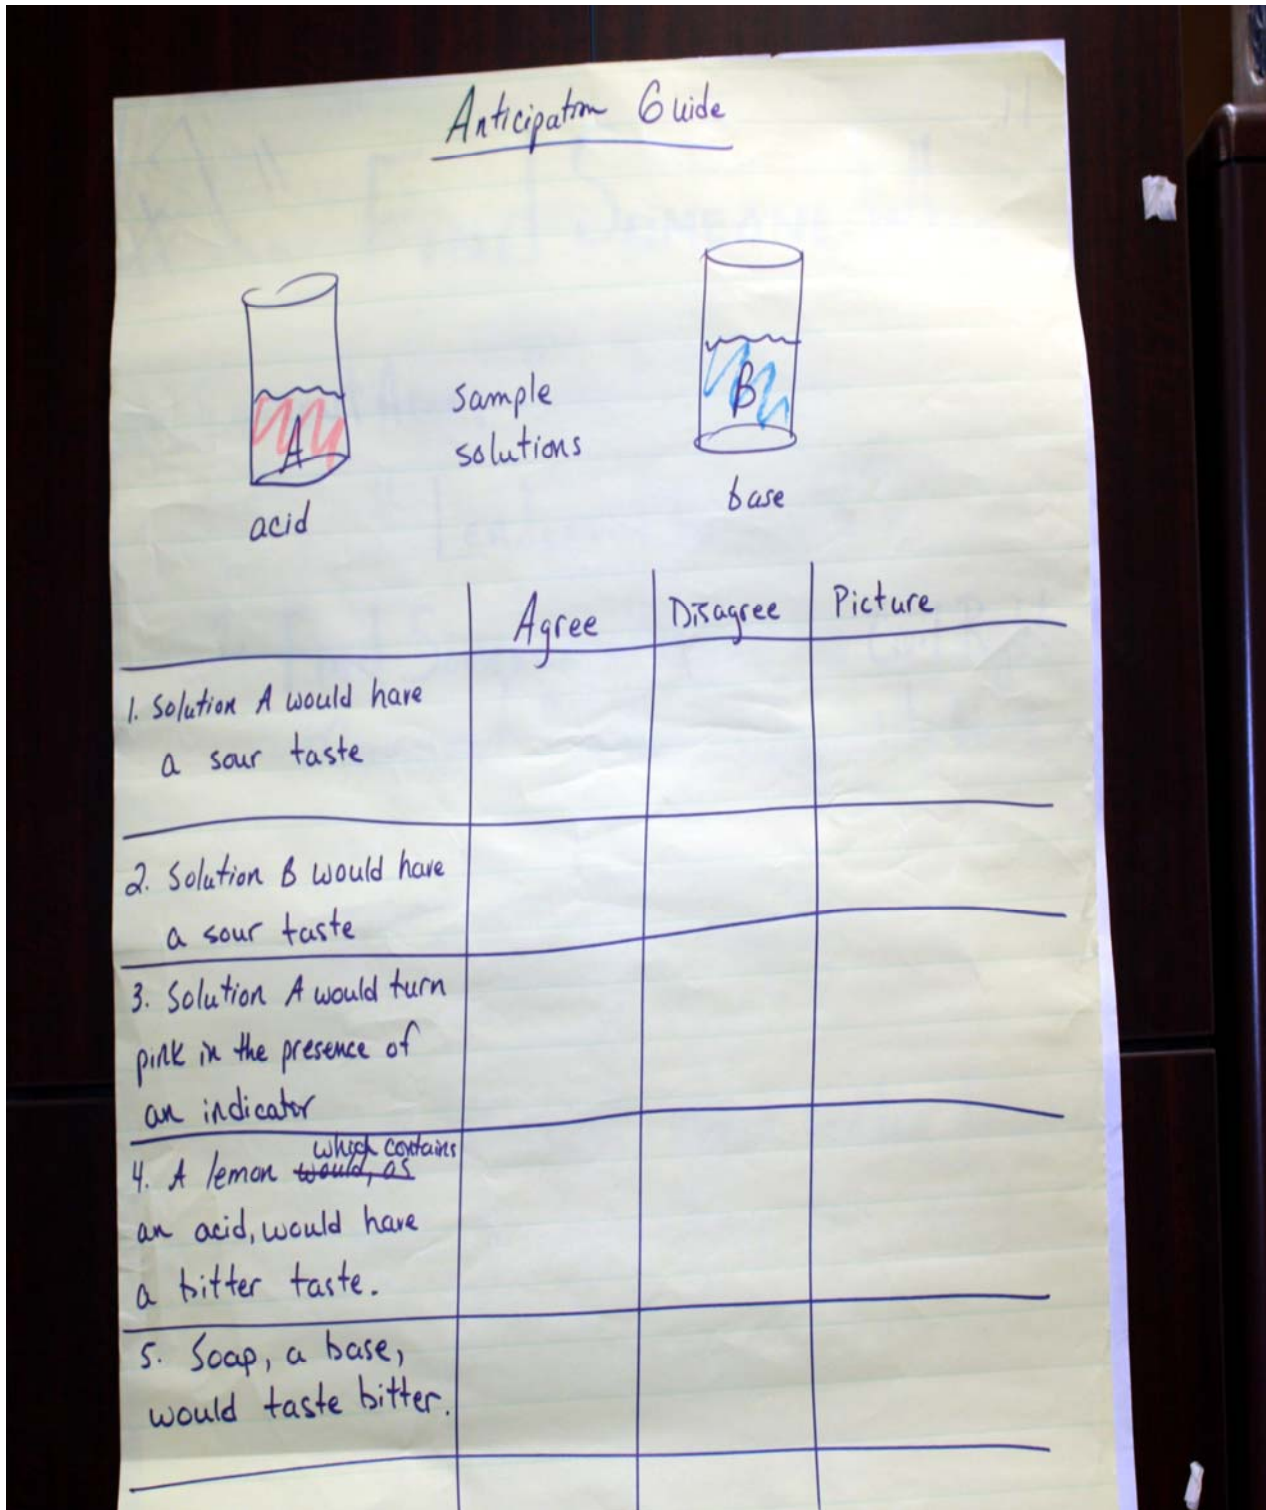 Anticipation Guide
A
acid
sample
solutions
B
base
Agree Disagree Picture
1. Solution A would have
a sour taste
2. Solution B would have
a sour taste
3. Solution A would turn
pink in the presence of
an indicator
which contains
4. A lemon would, as
an acid, would have
a bitter taste.
5. Soap, a base,
would taste bitter.